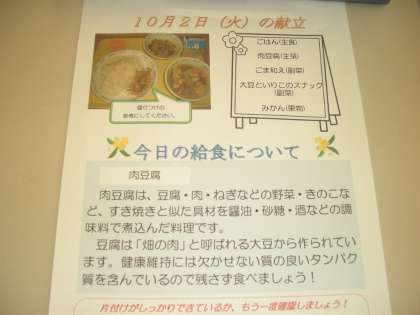 10月2日（火）の献立
ごはん(主食)
肉豆腐(主菜)
ごま和え(副菜)
大豆といりこのスナック
(副菜)
みかん(果物)
盛りつけの
参考にしてください。
今日の給食について
肉豆腐
肉豆腐は、豆腐・肉・ねぎなどの野菜・きのこな
ど、すき焼きと似た具材を醤油・砂糖・酒などの調
味料で煮込んだ料理です。
豆腐は「畑の肉」と呼ばれる大豆から作られていま
す。健康維持には欠かせない質の良いタンパク
質を含んでいるので残さず食べましょう！
片付けがしっかりできているか、もう一度確認しましょう！